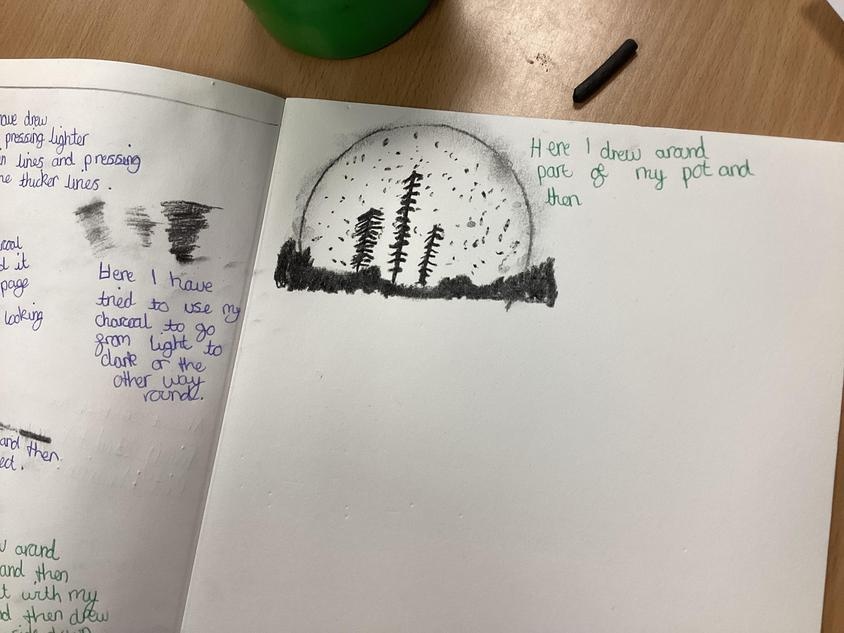 have drew
pressing lighter
lines and pressing
thicker lines.
it
page
looking
Here I have
tried to use my
charcoal to go
from light to
dark or the
other way
round.
and then
arand
and then
with my
then drew
Here I drew arand
part of my pot and
then